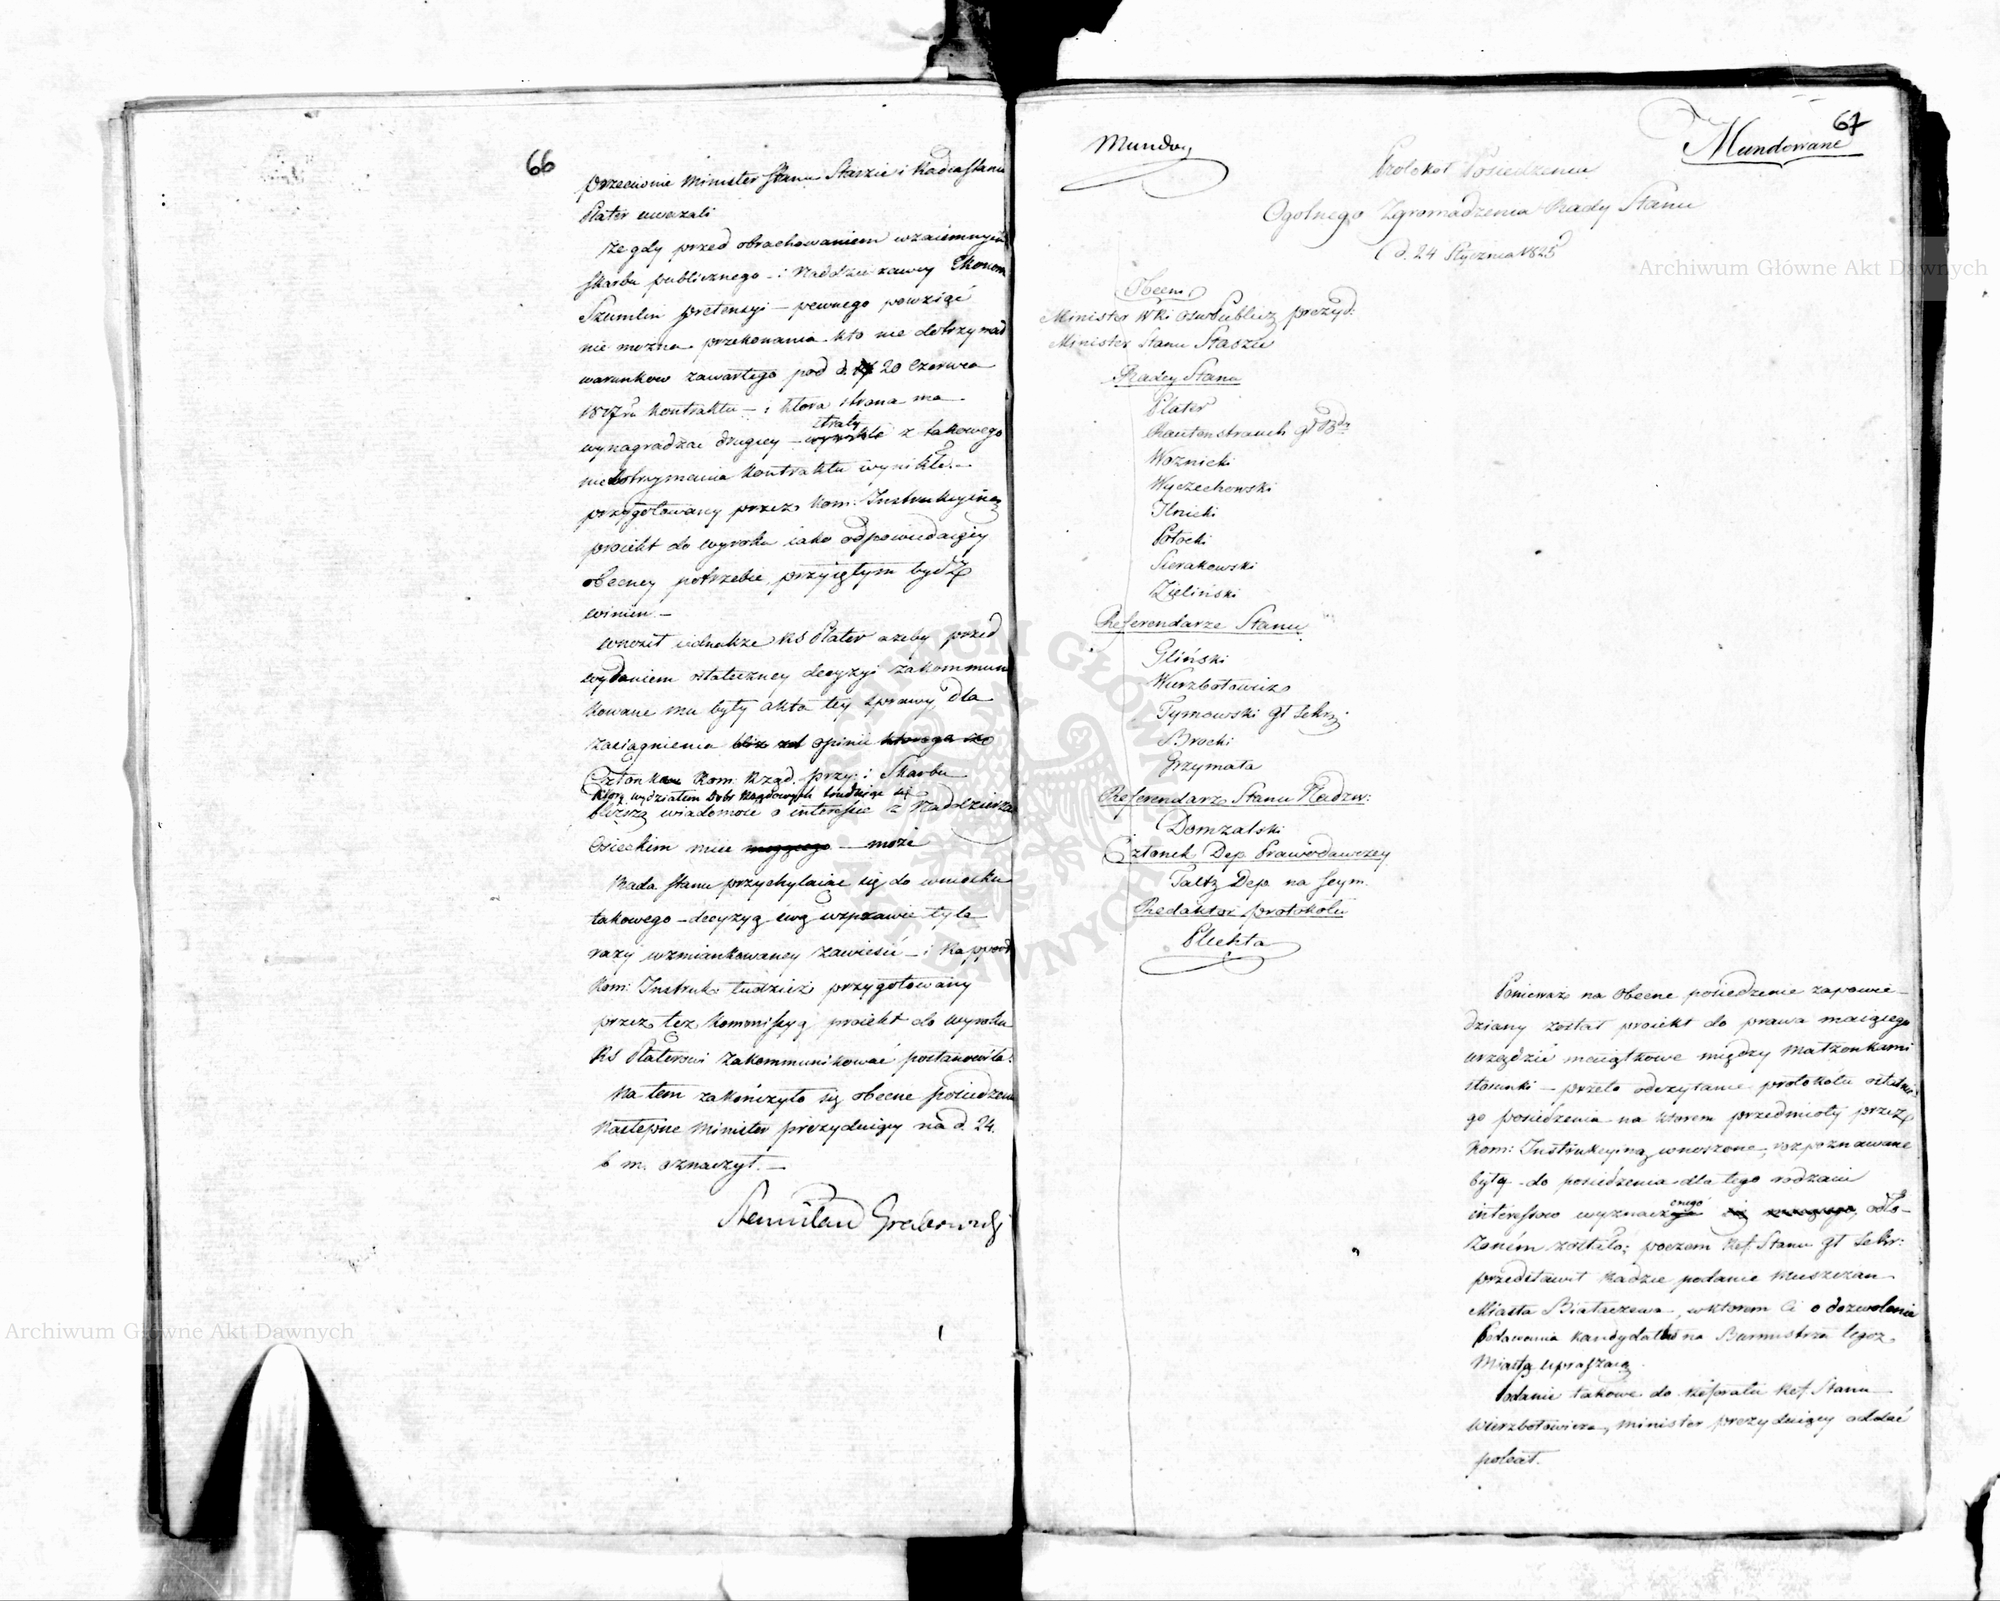 66
przeciwnie Minister Stanu Staszic i Radca Stanu
Plater uważali
że gdy przed obrachowaniem wzaiemnych
skarbu publicznego – i Naddzierżawcy Ekonom
Szumlin pretensyi – pewnego powziąć
nie można przekonania kto nie dotrzymał
warunkow zawartego pod d. 20 Czerwca
1817 r. kontraktu – i ktora strona ma
wynagradzać drugiey – straty z takowego
niedotrzymania kontraktu wynikłe. –
przygotowany przez Kom: Instrukcyiną
proiekt do wyroku iako odpowiedaiący
obecney potrzebie, przyiętym bydź
winien. –
wnosił iednakże RS Plater ażeby przed
wydaniem ostateczney decyzyi zakommuni
kowane mu były akta tey sprawy, dla
zasiągnienia opinii
Członka Kom. Rząd. przy: i Skarbu
który wydziałem Dobr Rządowych trudniąc się
bliższą wiadomość o interessie z Naddzierża
Osieckim mieć – może
Rada Stanu przychylaiąc się do wniosku
takowego – decyzyą swą wsprawie tyle
razy wzmiankowaney zawiesić – i Rapport
Kom: Instruk. tudzież przygotowany
przez też Kommissyą proiekt do wyroku
RS Platerowi zakommunikować postanowiła.
Na tem zakończyło się obecne posiedzenie
następne Minister prezyduiący na d. 24.
b m. oznaczył. –
Stanisław Grabowski
67
Munduy
Mundowane
Protokoł Posiedzenia
Ogolnego Zgromadzenia Rady Stanu
d. 24 Stycznia 1825
Obecni
Minister WRi Ośw Publicz prezyd:
Minister Stanu Staszic
Radcy Stanu
Plater
Rautenstrauch Gł Bdy
Woznicki
Wyczechowski
Ilnicki
Potocki
Sierakowski
Zieliński
Referendarze Stanu
Gliński
Wierzbołowicz
Tymowski Gł Sekrz
Brocki
Grzymała
Referendarz Stanu Nadzw:
Domzalski
Członek Dep. Prawodawczey
Faltz Dep. na Seym.
Redaktor protokołu
Plichta
Ponieważ na obecne posiedzenie zapowie–
dziany został proiekt do prawa maiącego
urządzić maiątkowe między małżonkami
stosunki – przeto odczytanie protokołu ostatnie
go posiedzenia na ktorem przedmioty przez
Kom: Instrukcyiną wnoszone, rozpoznawane
były – do posiedzenia dla tego rodzaiu
interessow wyznaczonego odło–
żonem zostało; poczem Ref. Stanu Gł Sekr:
przedstawił Radzie podanie Mieszczan
Miasta Białaczewa, wktorem Ci o dozwolenie
podawania kandydatów na Burmistrza tegoż
Miasta upraszaią.
Podanie takowe do referatu Ref Stanu
Wierzbołowicza, Minister prezyduiący oddać
polecił.
Archiwum Główne Akt Dawnych
Archiwum Główne Akt Dawnych